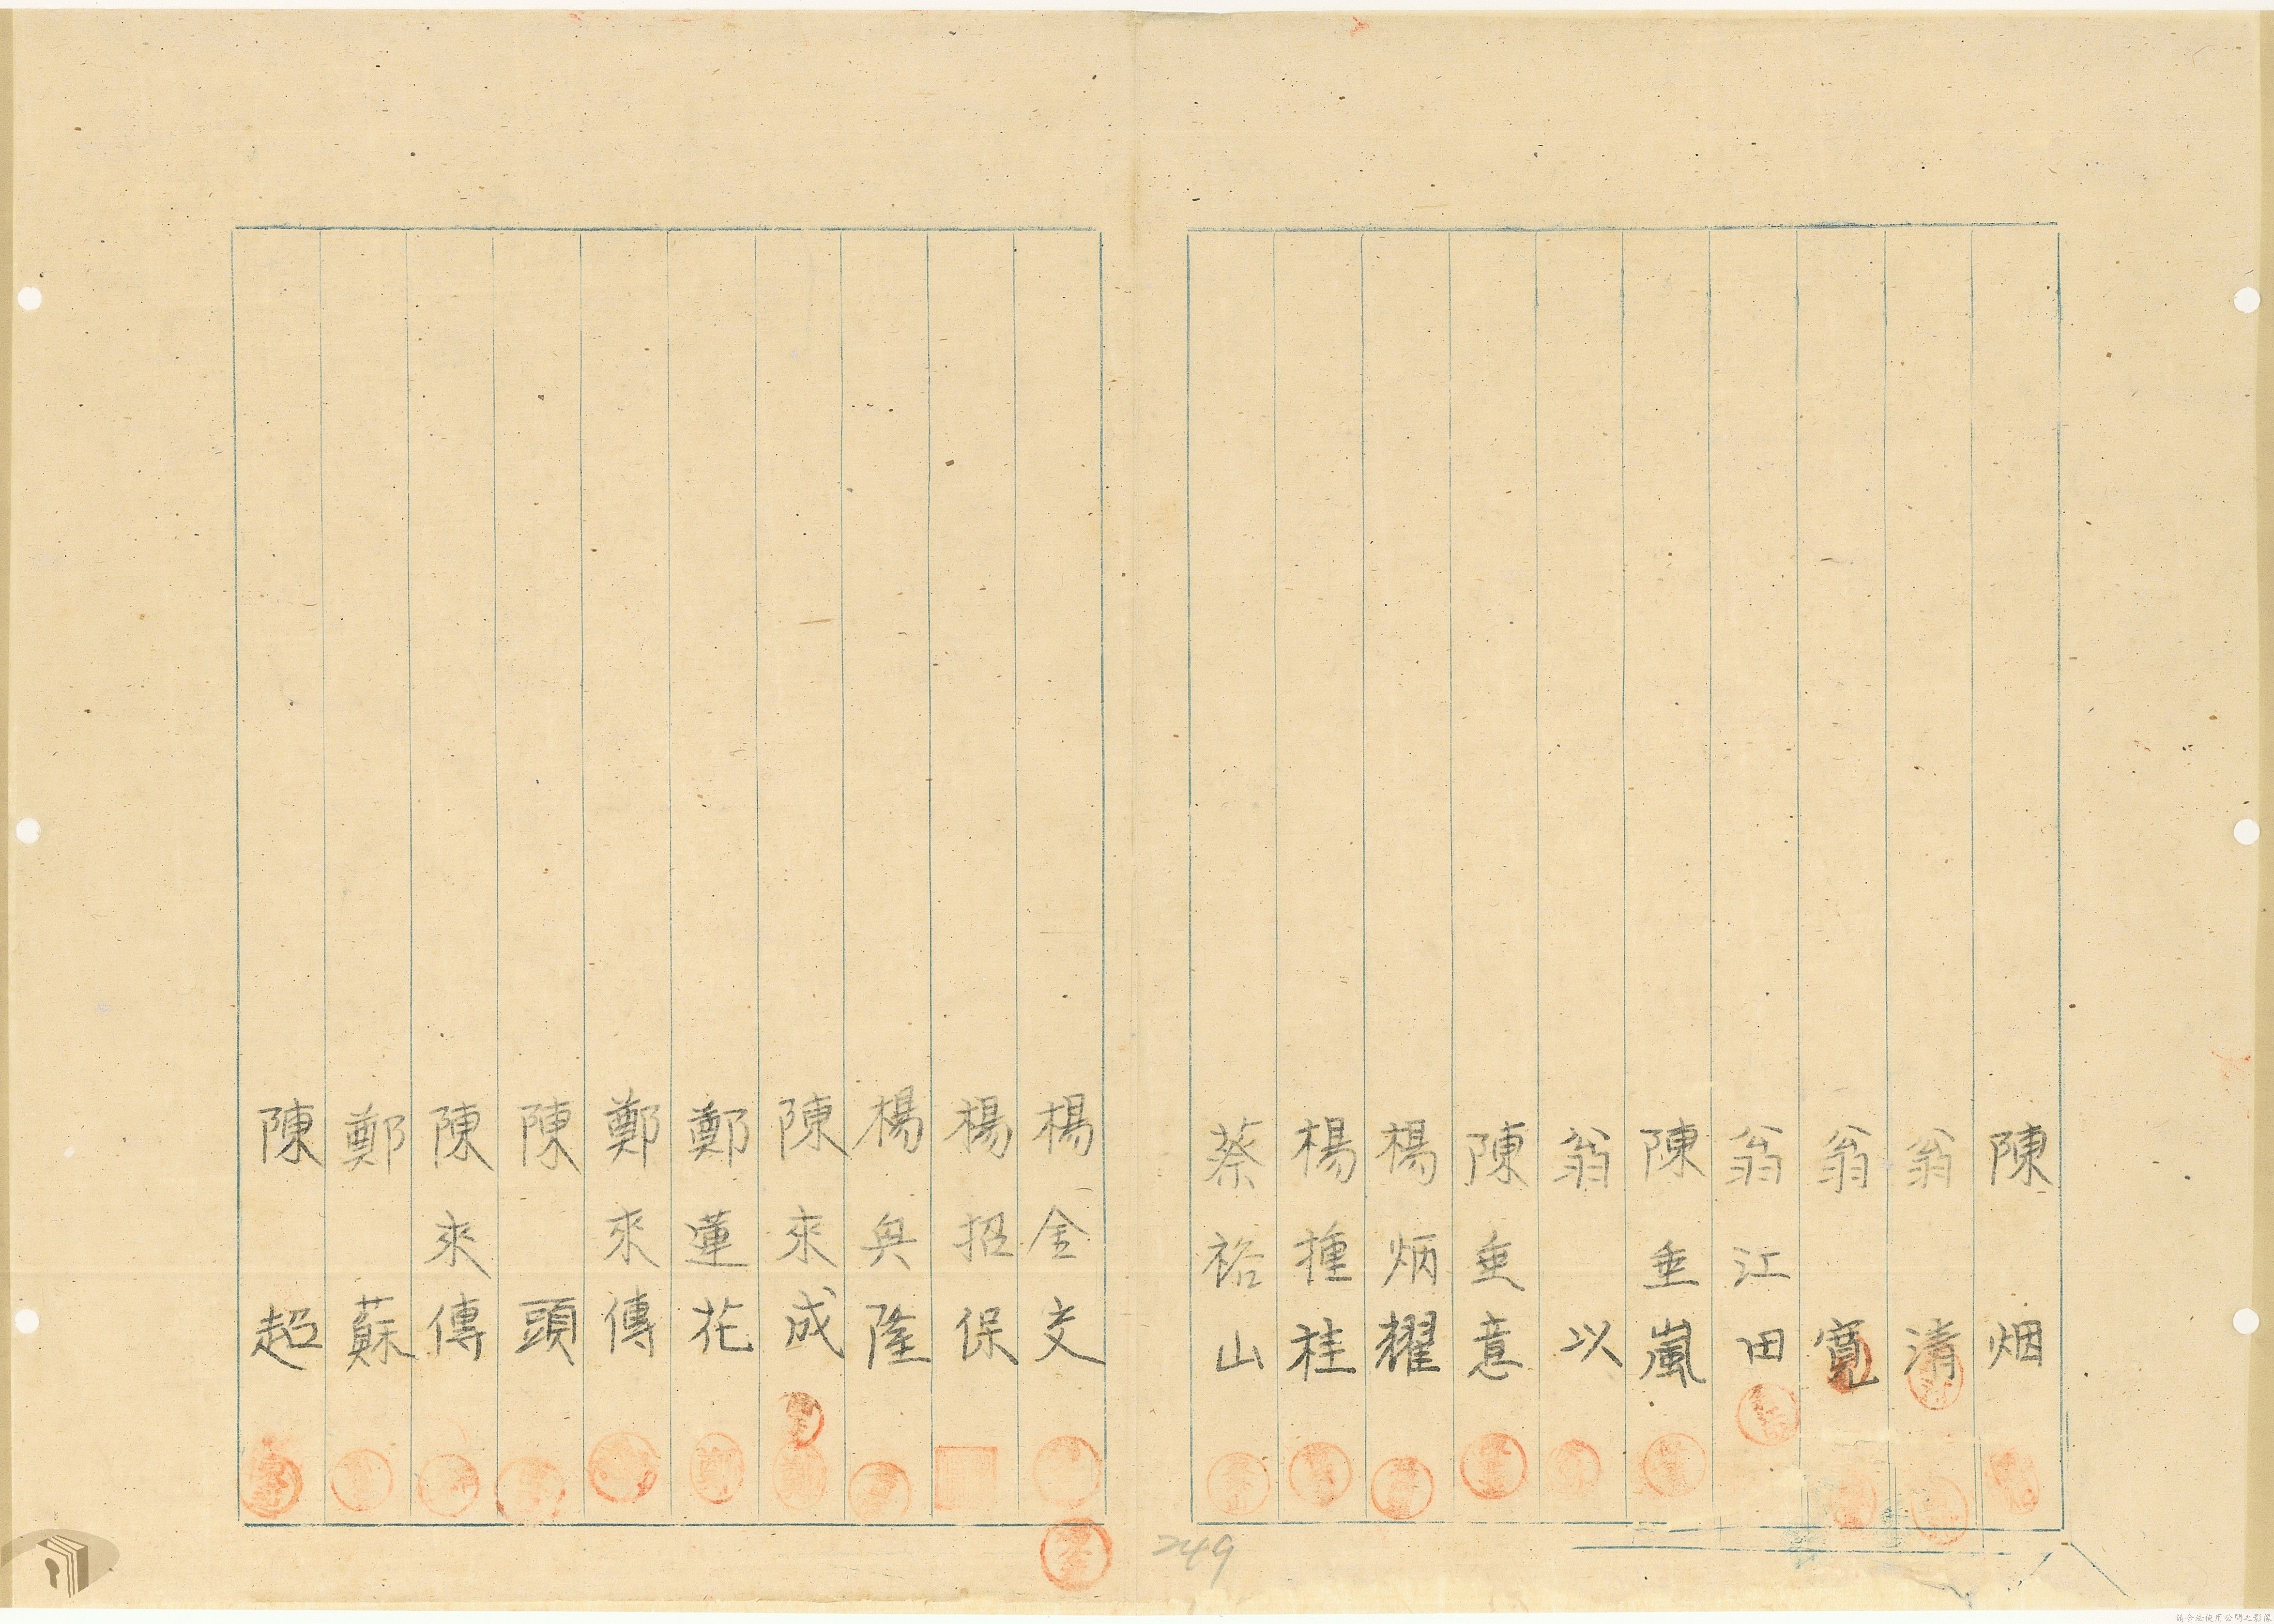 陳烟
翁清
翁寬
翁江田
陳垂嵐
翁以
陳垂意
楊炳耀
楊種桂
蔡裕山
楊金交
楊招保
楊興隆
陳來成
鄭蓮花
鄭來傳
陳頭
陳來傳
鄭蘇
陳超
249
請合法使用公開之影像